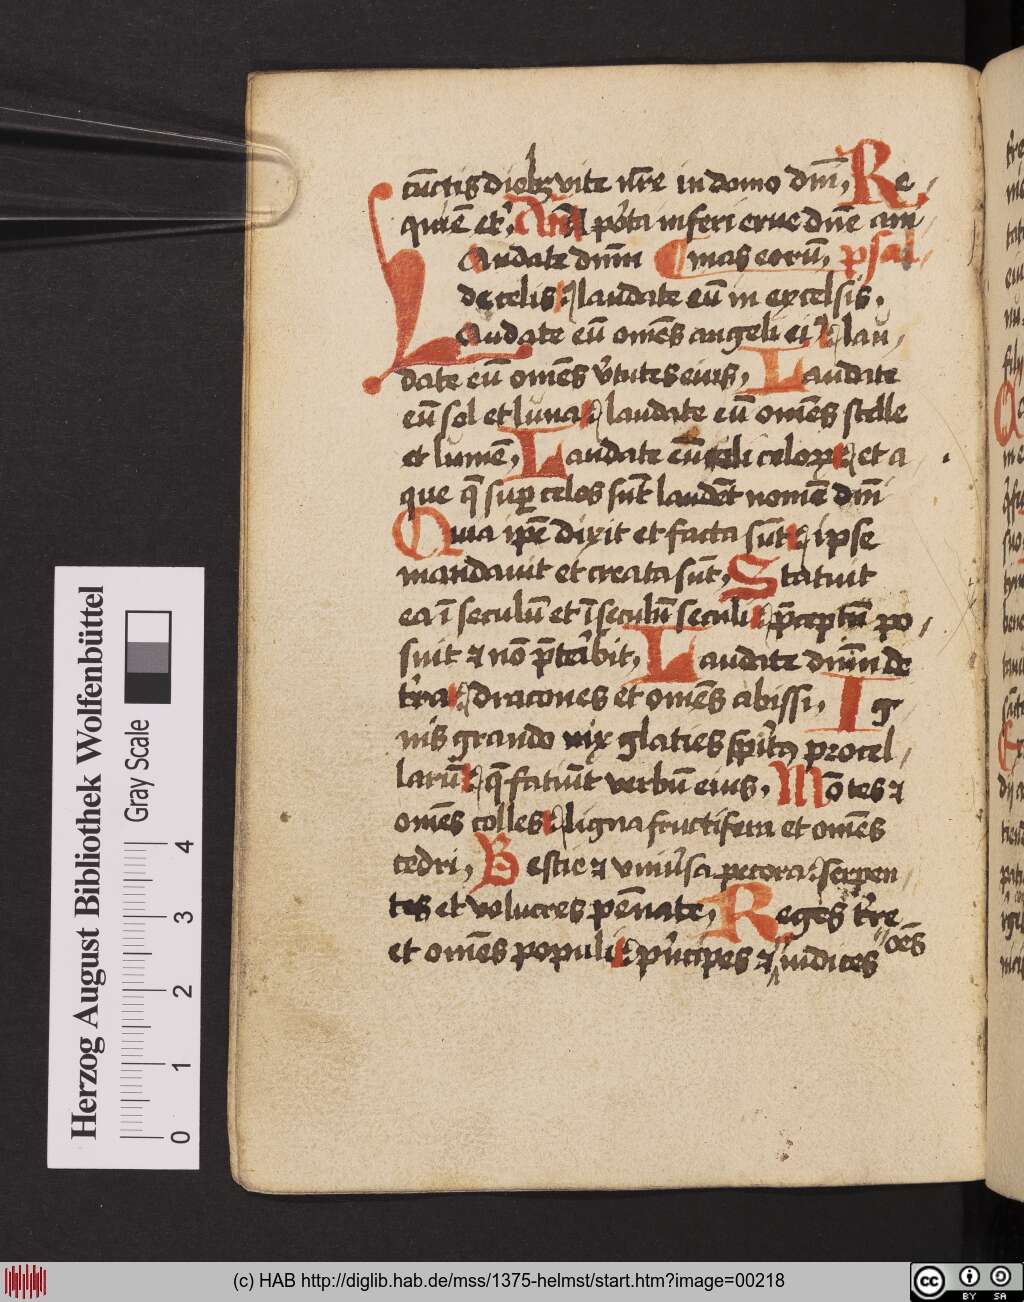 cūctis diebꝫ vite nr̄e in domo dnī, Re-
quiē et̉, An̄ A pòta inferi erue dnē ani-
Laudate dnm̄ ¶ mas eorū, psal-
de celis: laudate eū in excelsis,
Laudate eū om̄es angeli ei⁹: lau-
date eū om̄es v̉tutes eius, Laudate
eū sol et luna: laudate eū om̄es stelle
et lumē, Laudate eū celi celoꝝ: et a
que q̄ suꝑ celos sūt laudēt nomē dnī
Quia ip̄e dixit et facta sūt: ipse
mandauit et creata sūt, Statuit
ea ī seculū et ī seculū seculi: p̄ceptū po-
suit ⁊ nō p̄teribit, Laudate dnm̄ de
t̉ra: dracones et om̄es abissi, Ig
nis grando nix glacies spirit⁹ procel-
larū: q̄ faciūt verbū eius, Mōtes ⁊
om̄es colles: ligna fructifera et om̄es
cedri, Bestie ⁊ vniủsa pecora: serpen-
tes et volucres pēnate, Reges t̉re
et om̄es populi: p̉ncipes ⁊ iudices
oēs
Herzog August Bibliothek Wolfenbüttel
Gray Scale
0 1 2 3 4
(c) HAB http://diglib.hab.de/mss/1375-helmst/start.htm?image=00218
cc BY SA